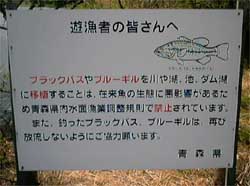 遊漁者の皆さんへ
ブラックバスやブルーギルを川や湖、池、ダム湖
に移植することは、在来魚の生態に悪影響があるた
め青森県内水面漁業調整規則で禁止されています。
また、釣ったブラックバス、ブルーギルは、再び
放流しないようにご協力願います。
青森県